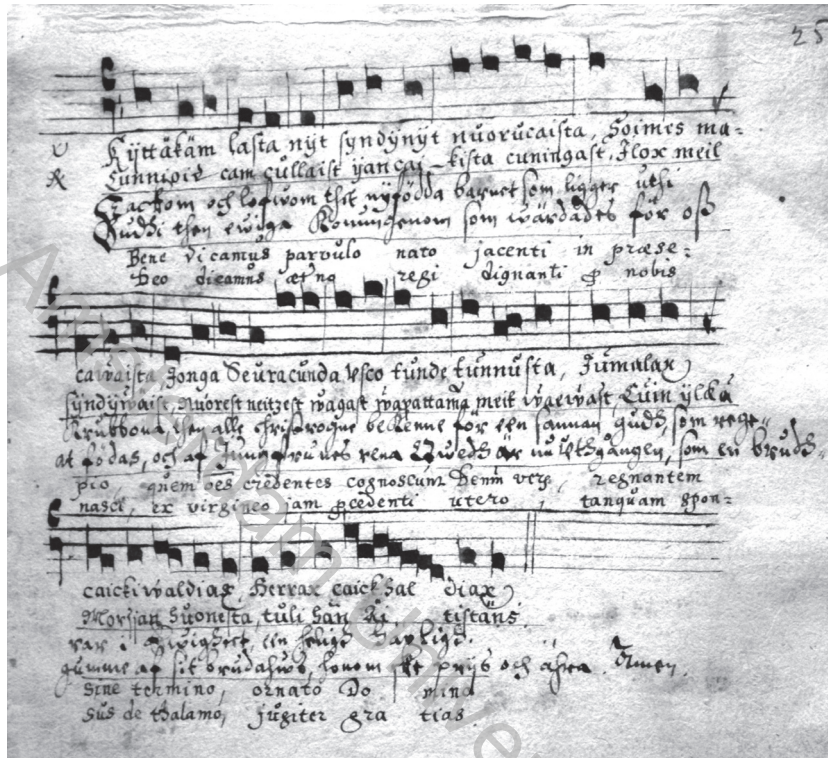 25
V Kyttäkäm lasta nyt syndynyt nuorucaista, Soimes ma=
R Cunnioid cam cullaist ijancai_kista cuningast, Ilox meil
Tackom och lofwom thet nyfödda barnet som ligger uthi
Gudhi then ewiga Konungenom som wärdades för oss
Bene dicamus parvulo nato jacenti in præse=
Deo dicamus æterno regi dignanti p nobis
cawaista, Jonga Seuracunda Usco tunde tunnusta, Jumalax
syndywäist, Nuorest neitzest wagast wapattama meit waewast, Cuin ylkä
Krubbona then alle christrogne bekenne för een sannan gudh, som rege=
at födas, och af Jungfrunes rena qwedh är nu uthgången, som en brudh=
pio, quem oēs credentes cognoscunt Deum ver, regnantem
nasci, ex virgineo jam pcedenti utero, tanquam spon=
caickiwaldias, Herrax caick hal diax
Morsjan huonesta, tuli hän Ki tistäns
rar i ewighet, een helig
gumme af sit brudahws, honom ske prijs och ähra. Amen.
sine termino, ornato Do mino
sus de thalamo, jugiter gra tias.
Amsterdam University